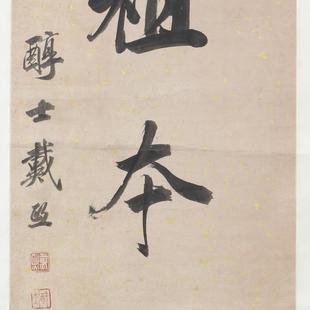 本
醇士戴熙